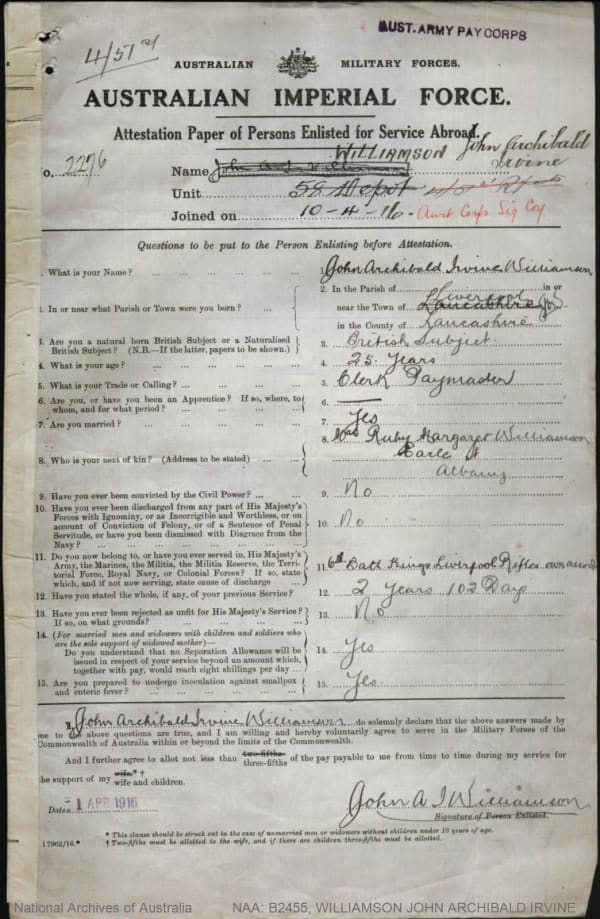 AUST. ARMY PAY CORPS
4/51st
AUSTRALIAN MILITARY FORCES.
AUSTRALIAN IMPERIAL FORCE.
Attestation Paper of Persons Enlisted for Service Abroad.
o. 2276
WILLIAMSON John Archibald Irvine
Name John A I Williamson
Unit 58 Depot
Joined on 10-4-16 Aust Corps Sig Coy
Questions to be put to the Person Enlisting before Attestation.
1. What is your Name? ... 1. John Archibald Irvine Williamson
2. In or near what Parish or Town were you born? ... 2. In the Parish of in or
near the Town of Liverpool Lancashire
in the County of Lancashire
3. Are you a natural born British Subject or a Naturalised
British Subject? (N.B.—If the latter, papers to be shown.) 3. British Subject.
4. What is your age? ... 4. 25 Years
5. What is your Trade or Calling? ... 5. Clerk Paymaster
6. Are you, or have you been an Apprentice? If so, where, to
whom, and for what period? ... 6. —
7. Are you married? ... 7. Yes
8. Who is your next of kin? (Address to be stated) ... 8. Mrs Ruby Margaret Williamson
Earle St
Albany
9. Have you ever been convicted by the Civil Power? ... 9. No
10. Have you ever been discharged from any part of His Majesty's
Forces with Ignominy, or as Incorrigible and Worthless, or on
account of Conviction of Felony, or of a Sentence of Penal
Servitude, or have you been Dismissed with Disgrace from the
Navy? ... 10. No
11. Do you now belong to, or have you ever served in, His Majesty's
Army, the Marines, the Militia, the Militia Reserve, the Terri-
torial Force, Royal Navy, or Colonial Forces? If so, state
which, and if not now serving, state cause of discharge ... 11. 6th Batt Kings Liverpool Rifles own accord
12. Have you stated the whole, if any, of your previous Service? 12. 2 Years 102 Days
13. Have you ever been rejected as unfit for His Majesty's Service?
If so, on what grounds? ... 13. No
14. (For married men and widowers with children and soldiers who
are the sole support of widowed mother)—
Do you understand that no Separation Allowance will be
issued in respect of your service beyond an amount which,
together with pay, would reach eight shillings per day ... 14. Yes
15. Are you prepared to undergo inoculation against smallpox
and enteric fever? ... 15. Yes
I, John Archibald Irvine Williamson do solemnly declare that the above answers made by
me to the above questions are true, and I am willing and hereby voluntarily agree to serve in the Military Forces of the
Commonwealth of Australia within or beyond the limits of the Commonwealth.
And I further agree to allot not less than two-fifths three-fifths of the pay payable to me from time to time during my service for
the support of my wife* † wife and children.
Date 1 APR 1916
John A I Williamson
Signature of Person Enlisted.
* This clause should be struck out in the case of unmarried men or widowers without children under 18 years of age.
17902/16.* † Two-fifths must be allotted to the wife, and if there are children three-fifths must be allotted.
National Archives of Australia NAA: B2455, WILLIAMSON JOHN ARCHIBALD IRVINE